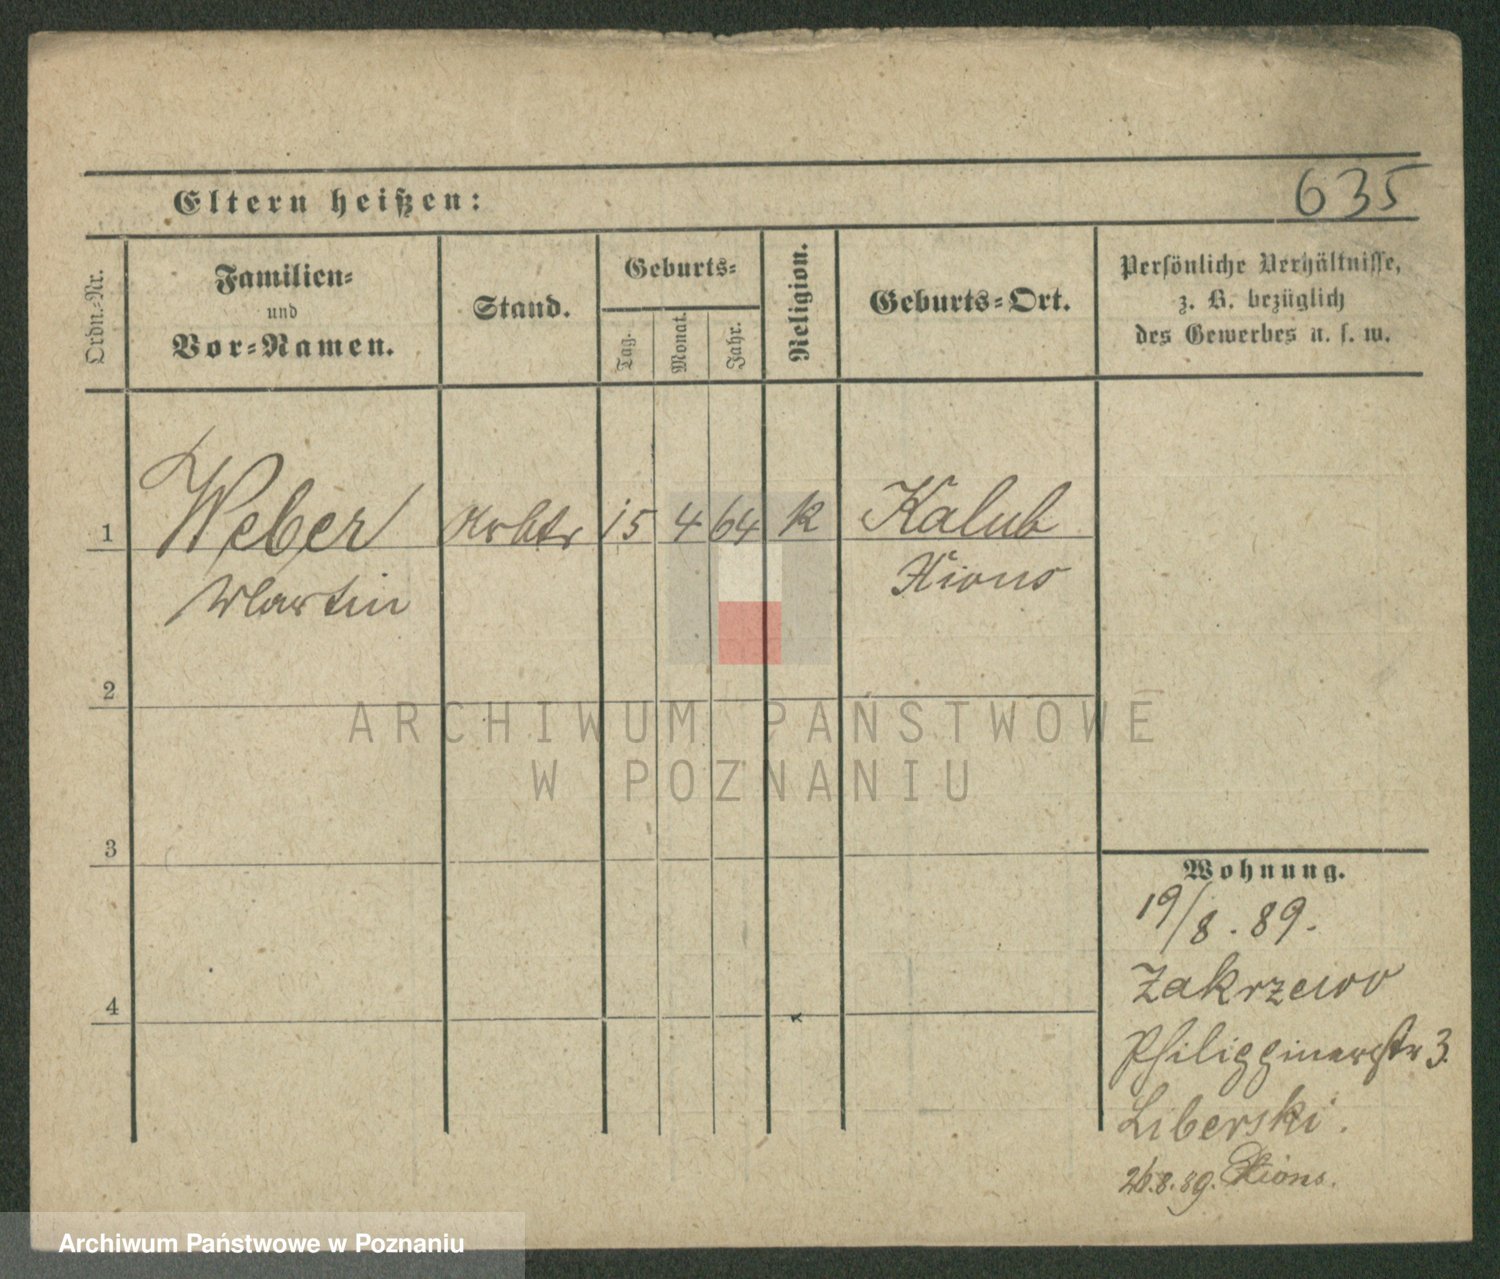 Eltern heißen:
635
Ordn.-Nr.
Familien-
und
Vor-Namen.
Stand.
Geburts-
Tag.
Monat.
Jahr.
Religion.
Geburts-Ort.
Persönliche Verhältnisse,
z. B. bezüglich
des Gewerbes u. s. w.
1
Weber
Martin
Arbtr
15
4
64
K
Kalub
Xions
2
3
4
Wohnung.
19/8. 89.
Zakrzewo
Philippinerstr 3.
Liberski.
26.8.89. Xions.
ARCHIWUM PAŃSTWOWE
W POZNANIU
Archiwum Państwowe w Poznaniu